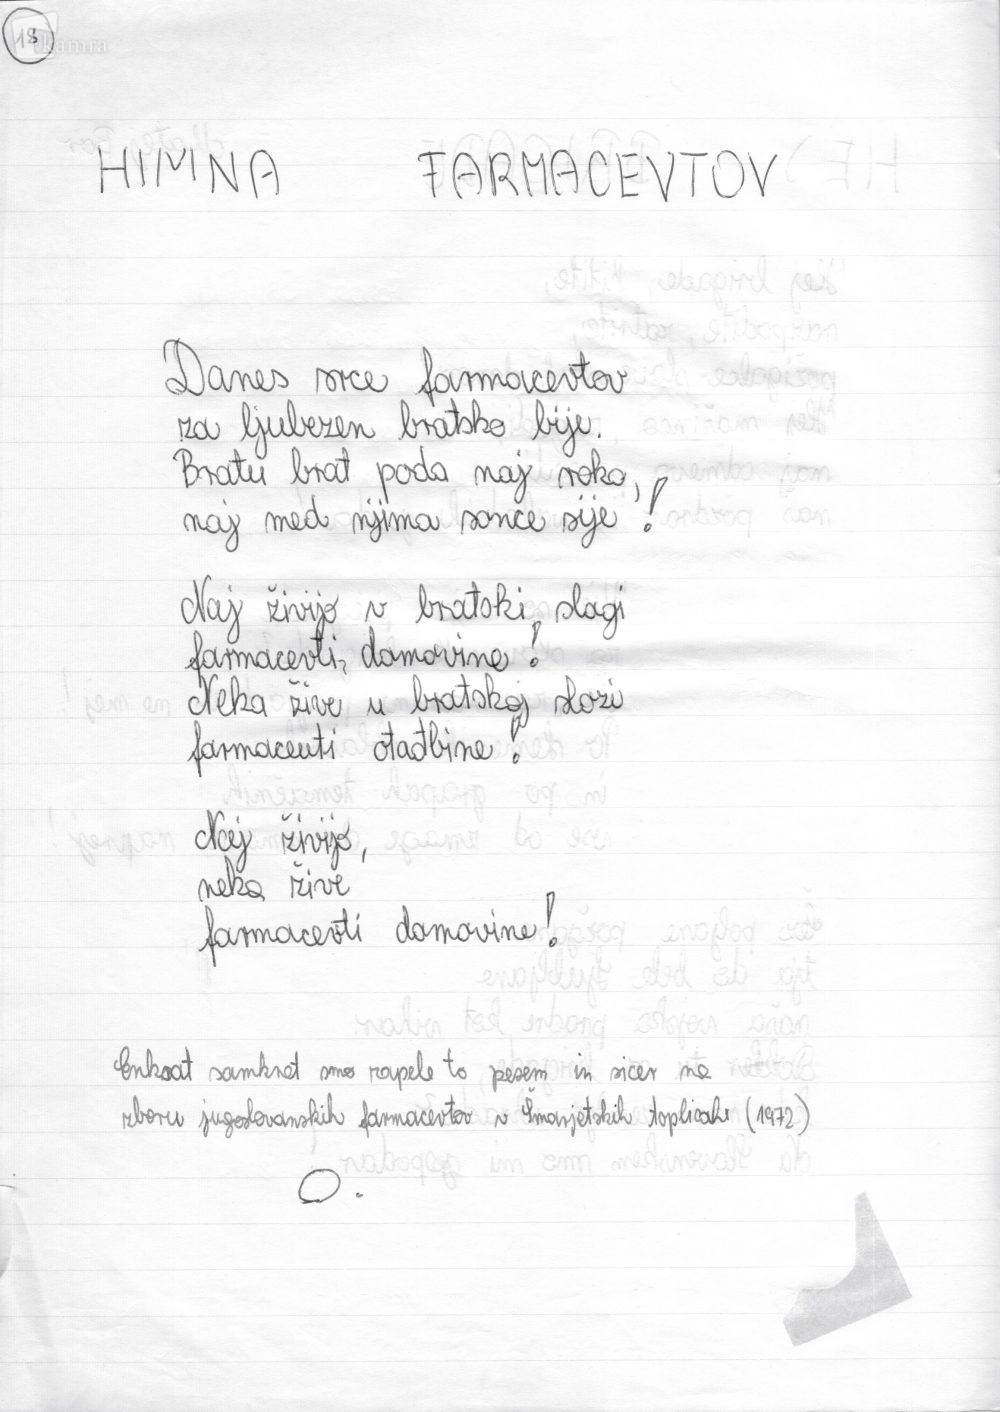 18
kamra
HIMNA FARMACEVTOV
Danes srce farmacevtov
za ljubezen bratsko bije.
Bratu brat poda naj roko,
naj med njima sonce sije!
Naj živijo v bratski slogi
farmacevti, domovine!
Neka žive u bratskoj slozi
farmaceuti otadbine!
Naj živijo,
neka žive
farmacevti domovine!
Enkrat samkrat smo zapele to pesem in sicer na
zboru jugoslovanskih farmacevtov v Šmarjetskih toplicah (1972)
O.